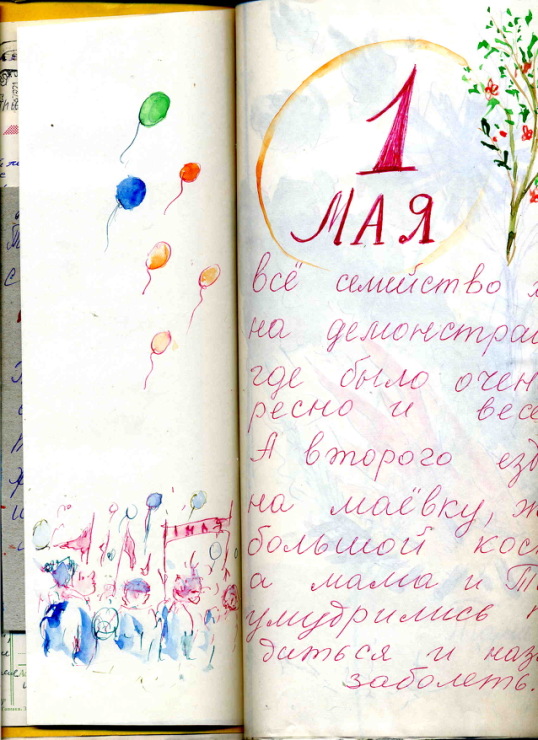 1
МАЯ
всё семейство
на демонстрац
где было очен
ресно и весе
А второго езд
на маёвку, ж
большой кос
а мама и Т
умудрились
диться и наз
заболеть.
1 МАЯ